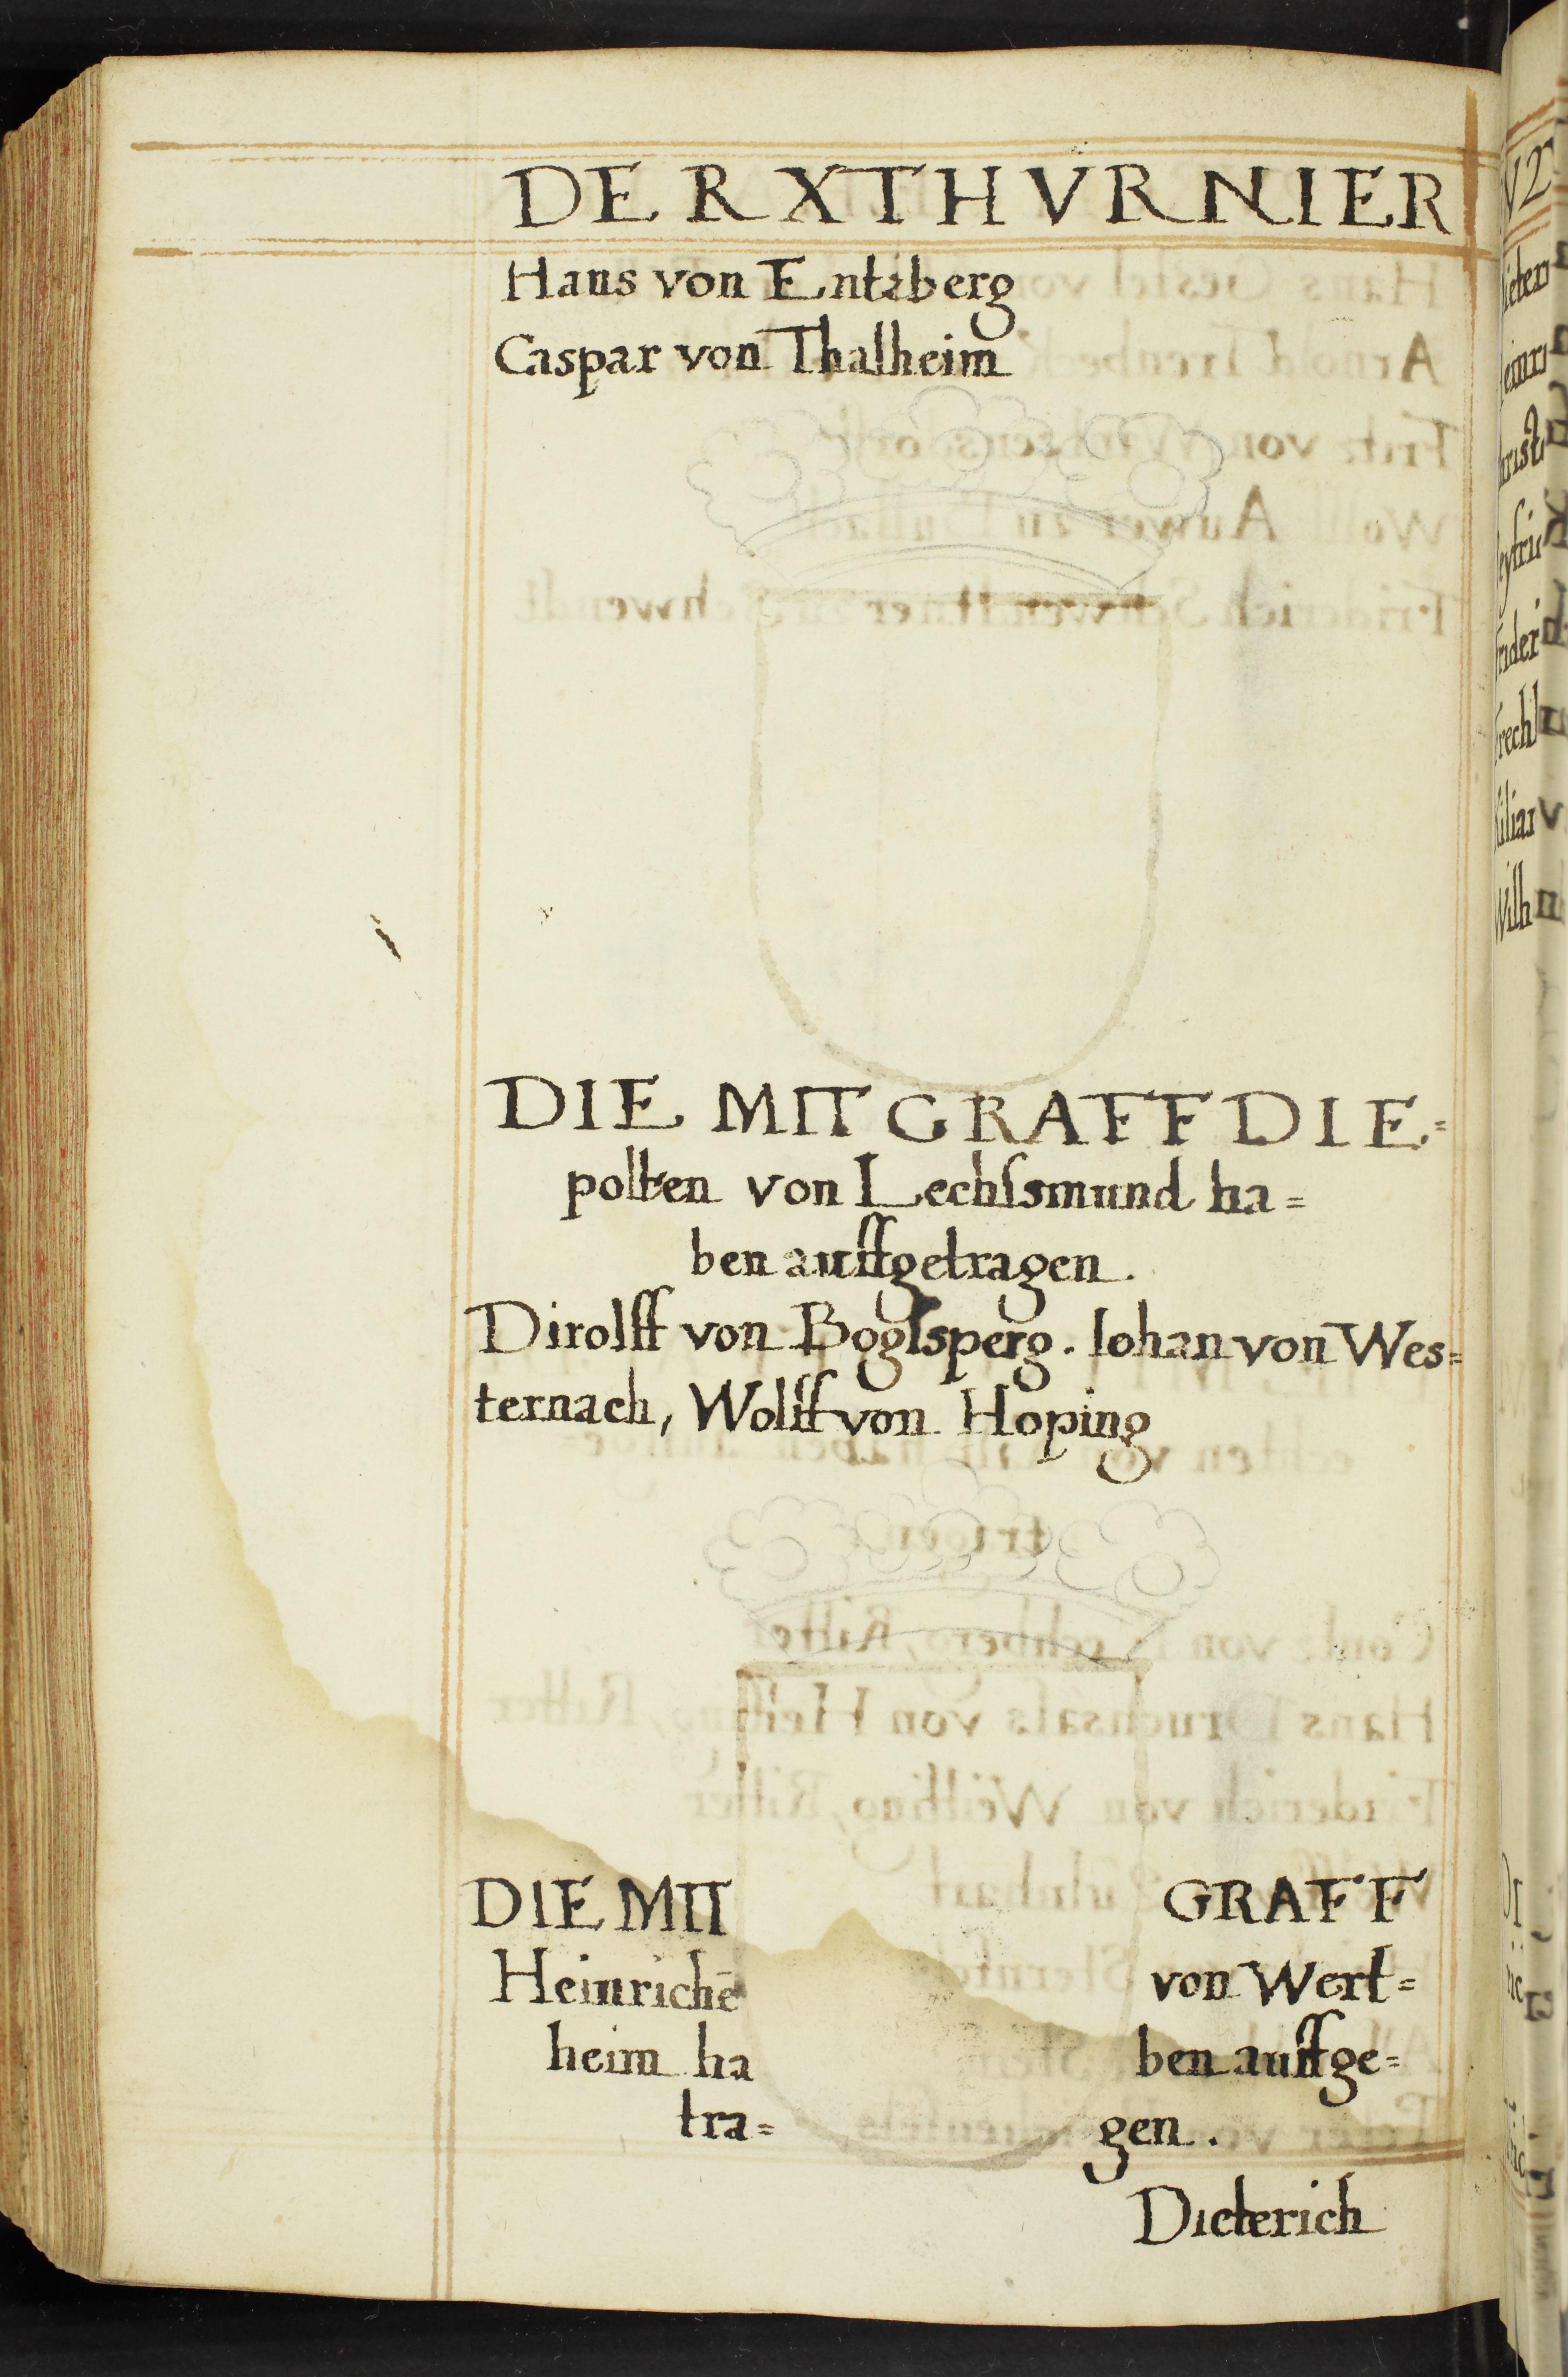 DER X THVRNIER
Hans von Entzberg
Caspar von Thalheim
DIE MIT GRAFF DIE=
polten von Lechſsmund ha=
ben auffgetragen.
Dirolff von Boglsperg. Iohan von Wes=
ternach, Wolff von Hoping
DIE MIT GRAFF
Heinrichē von Wert=
heim ha ben auffge=
tra= gen.
Dieterich